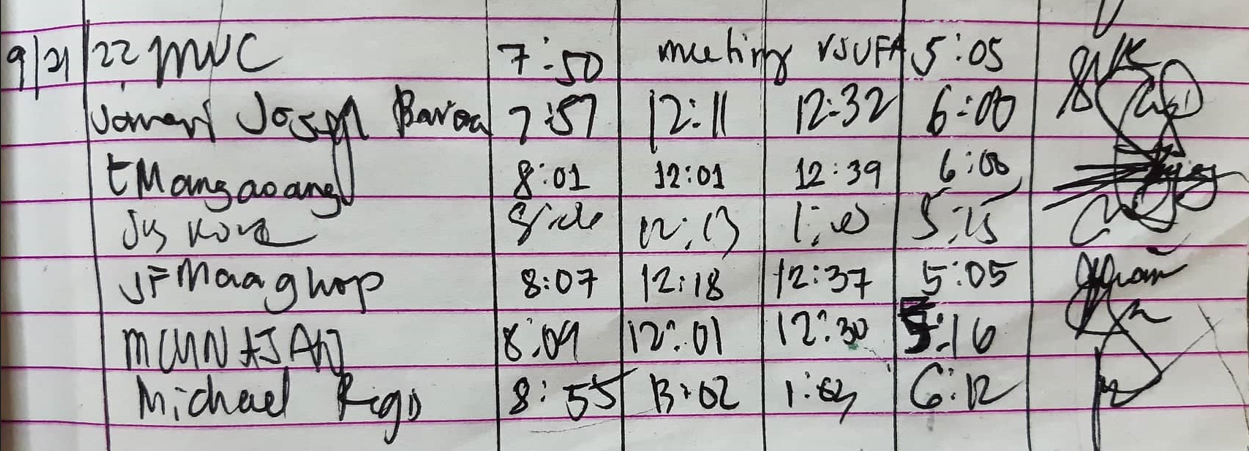 9/21/22 MVC 7:50 meeting VSUFA 5:05
Jomari Joseph Barrera 7:57 12:11 12:32 6:00
EMangaoang 8:01 12:01 12:39 6:00
12:13 5:15
JFMaaghop 8:07 12:18 12:37 5:05
8:09 12:01 12:30 5:16
Michael 8:55 6:12